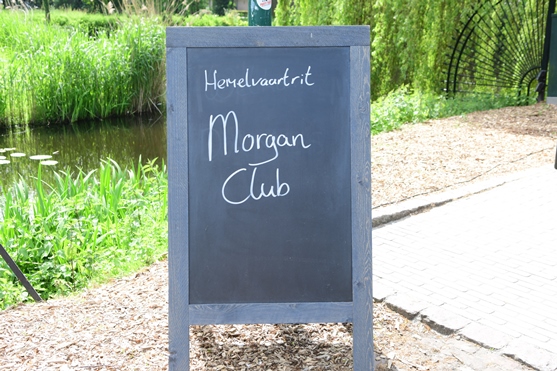 Hemelvaartrit
Morgan
Club